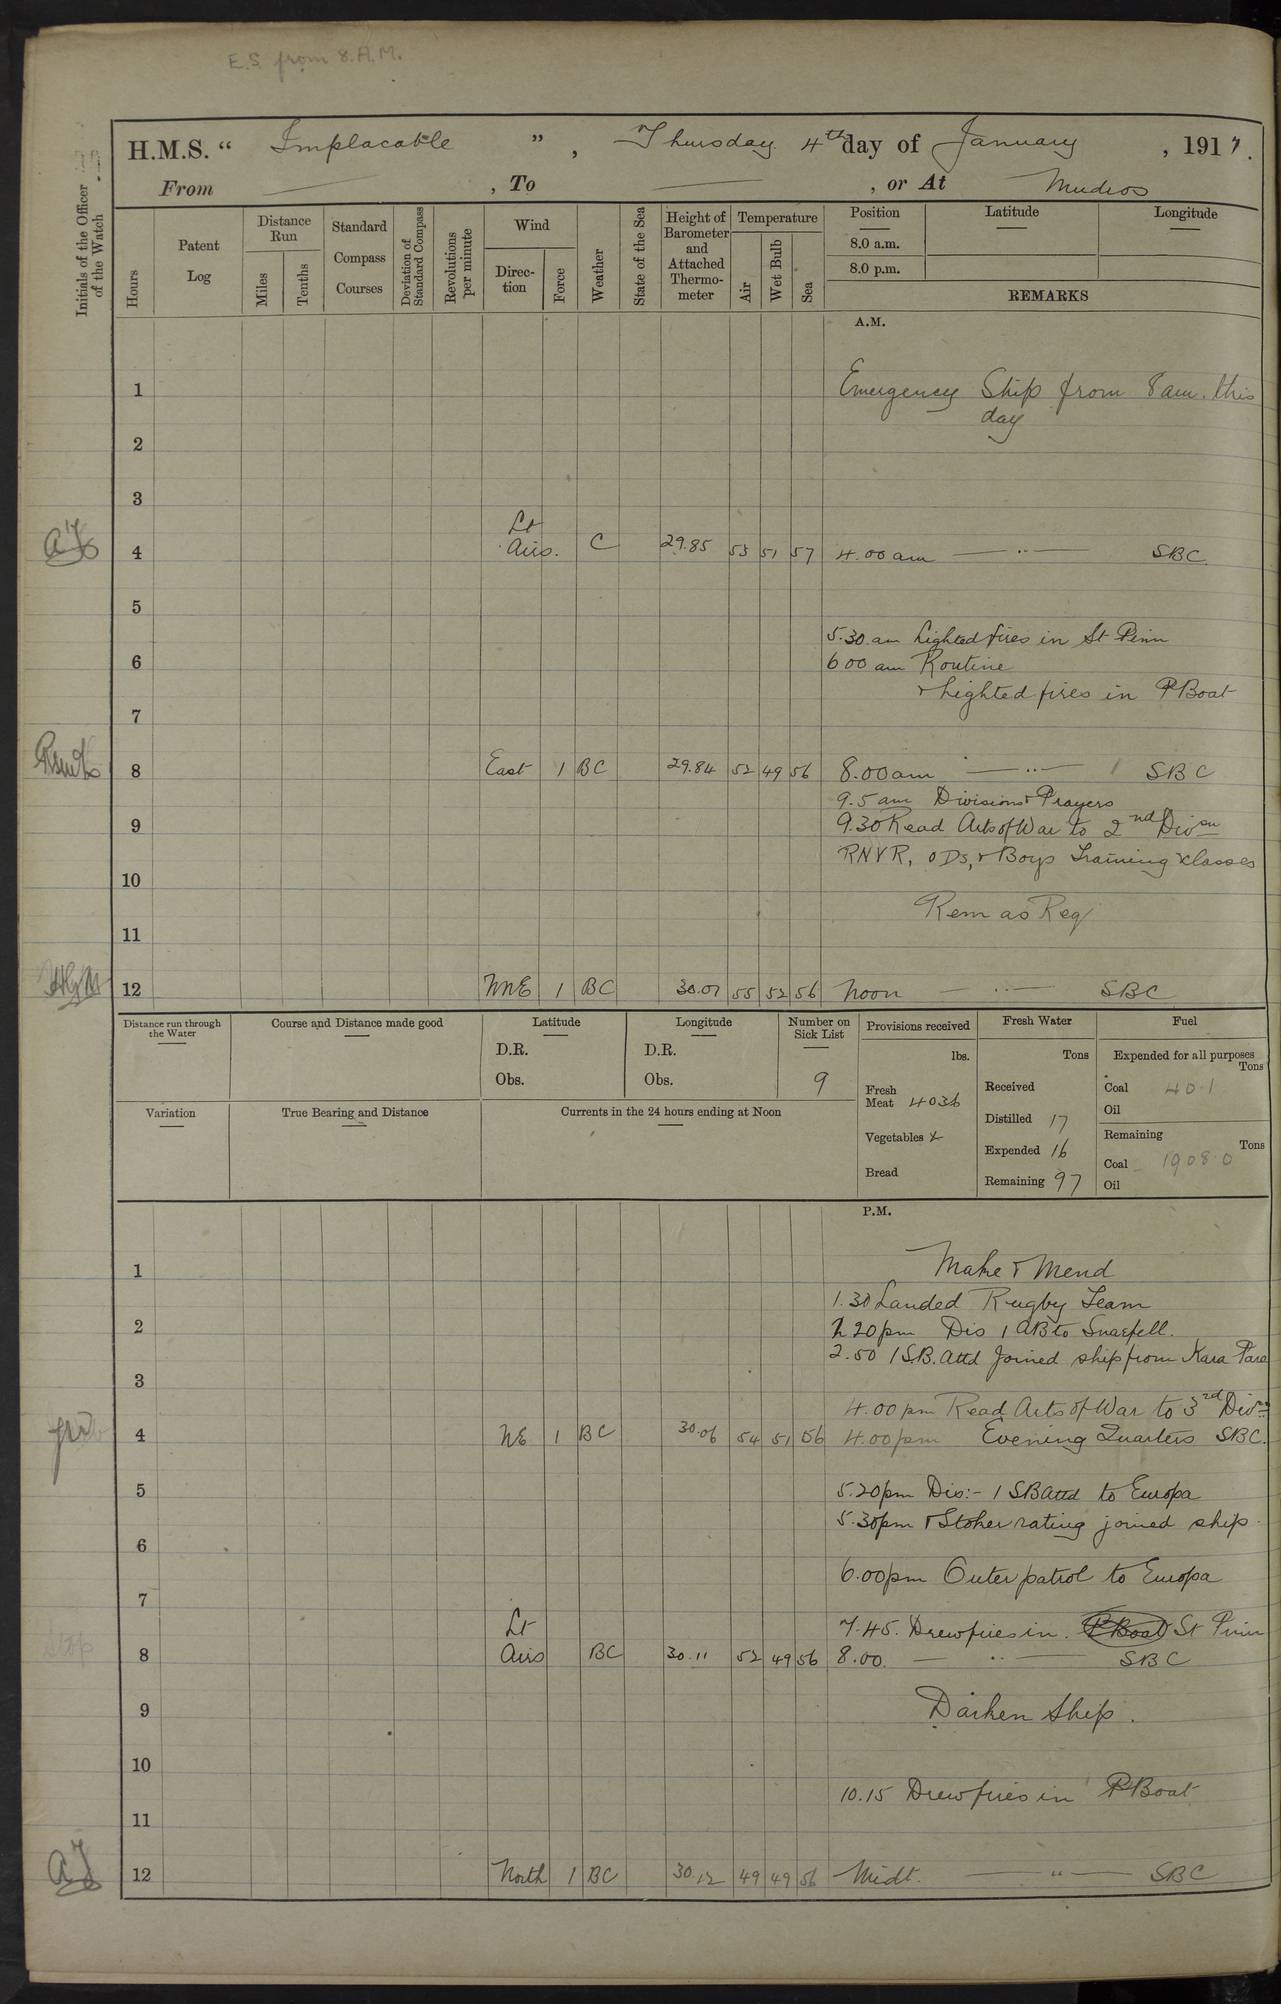 E.S. from 8.A.M.
H.M.S. " Implacable ", Thursday 4th day of January, 1917.
From — , To — , or At Mudros
Initials of the Officer of the Watch
Hours
Patent Log
Distance Run
Miles
Tenths
Standard Compass Courses
Deviation of Standard Compass
Revolutions per minute
Wind
Direc-tion
Force
Weather
State of the Sea
Height of Barometer and Attached Thermo-meter
Temperature
Air
Wet Bulb
Sea
Position
8.0 a.m.
8.0 p.m.
Latitude
Longitude
REMARKS
A.M.
1 Emergency Ship from 8 am. this
day
2
3
Lt
4 Airs. C 29.85 53 51 57 4.00 am — " — SBC.
5
5.30 am Lighted fires in St Pinn
6 6 00 am Routine
& lighted fires in PBoat
7
8 East 1 BC 29.84 52 49 56 8.00 am — " — SBC
9.5 am Divisions & Prayers
9 9.30 Read Arts of War to 2nd Divon
RNVR, ODs, & Boys Training classes
10
Rem as Req
11
12 NNE 1 BC 30.07 55 52 56 Noon — " — SBC
Distance run through the Water
Course and Distance made good
Latitude
D.R.
Obs.
Longitude
D.R.
Obs.
Number on Sick List
9
Provisions received
lbs.
Fresh Meat 4036
Vegetables
Bread
Fresh Water
Tons
Received
Distilled 17
Expended 16
Remaining 97
Fuel
Expended for all purposes
Tons
Coal 40.1
Oil
Remaining
Tons
Coal 1908.0
Oil
Variation
True Bearing and Distance
Currents in the 24 hours ending at Noon
P.M.
1 Make & Mend
1.30 Landed Rugby Team
2 2 20 pm Dis 1 AB to Snaefell.
2.50 1 S.B. Attd Joined ship from Kara Para
3
4.00 pm Read Arts of War to 3rd Divon
4 NE 1 BC 30.06 54 51 56 4.00 pm Evening Quarters SBC.
5 5.20 pm Dis:- 1 SB Attd to Europa
5.30pm Stoker rating joined ship.
6
6.00pm Outer patrol to Europa
7
Lt 7.45. Drew fires in PBoat St Pinn
8 Airs BC 30.11 52 49 56 8.00. — " — SBC
9 Darken Ship.
10
10.15 Drew fires in PBoat
11
12 North 1 BC 30.12 49 49 56 Midt. — " — SBC